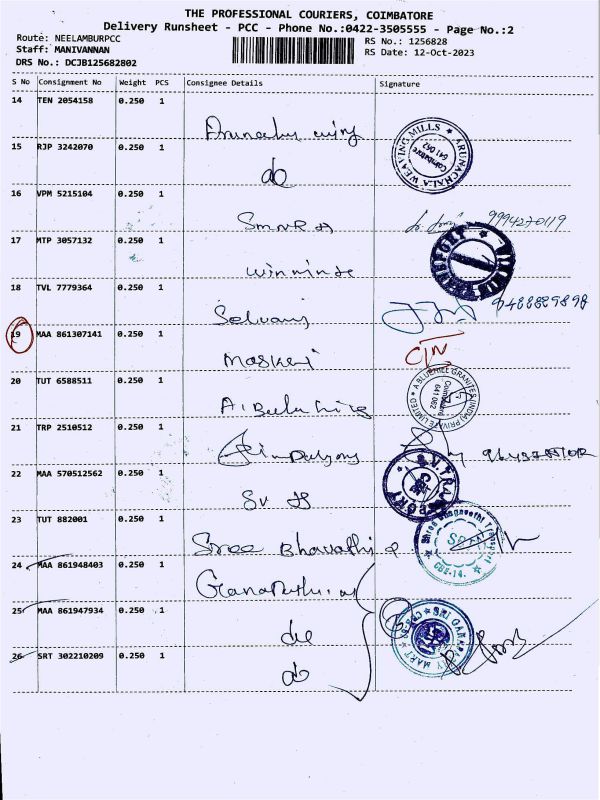 THE PROFESSIONAL COURIERS, COIMBATORE
Delivery Runsheet - PCC - Phone No.:0422-3505555 - Page No.:2
Route: NEELAMBURPCC
RS No.: 1256828
Staff: MANIVANNAN
RS Date: 12-Oct-2023
DRS No.: DCJB125682802
S No Consignment No Weight PCS Consignee Details Signature
14 TEN 2054158 0.250 1
ARUNACHALA WEAVING MILLS
Coimbatore
641 062
15 RJP 3242070 0.250 1
do
16 VPM 5215104 0.250 1
9994270119
17 MTP 3057132 0.250 1
18 TVL 7779364 0.250 1
Selvaraj
9488829898
19 MAA 861307141 0.250 1
20 TUT 6588511 0.250 1
A BLUEHILL GRANITES (INDIA) PRIVATE LIMITED
Coimbatore
641 062
21 TRP 2510512 0.250 1
22 MAA 570512562 0.250 1
CBE
23 TUT 882001 0.250 1
Sree Bharathi
CBE-14.
24 MAA 861948403 0.250 1
25 MAA 861947934 0.250 1
do
SRI GANAPATHY MART
26 SRT 302210209 0.250 1
do